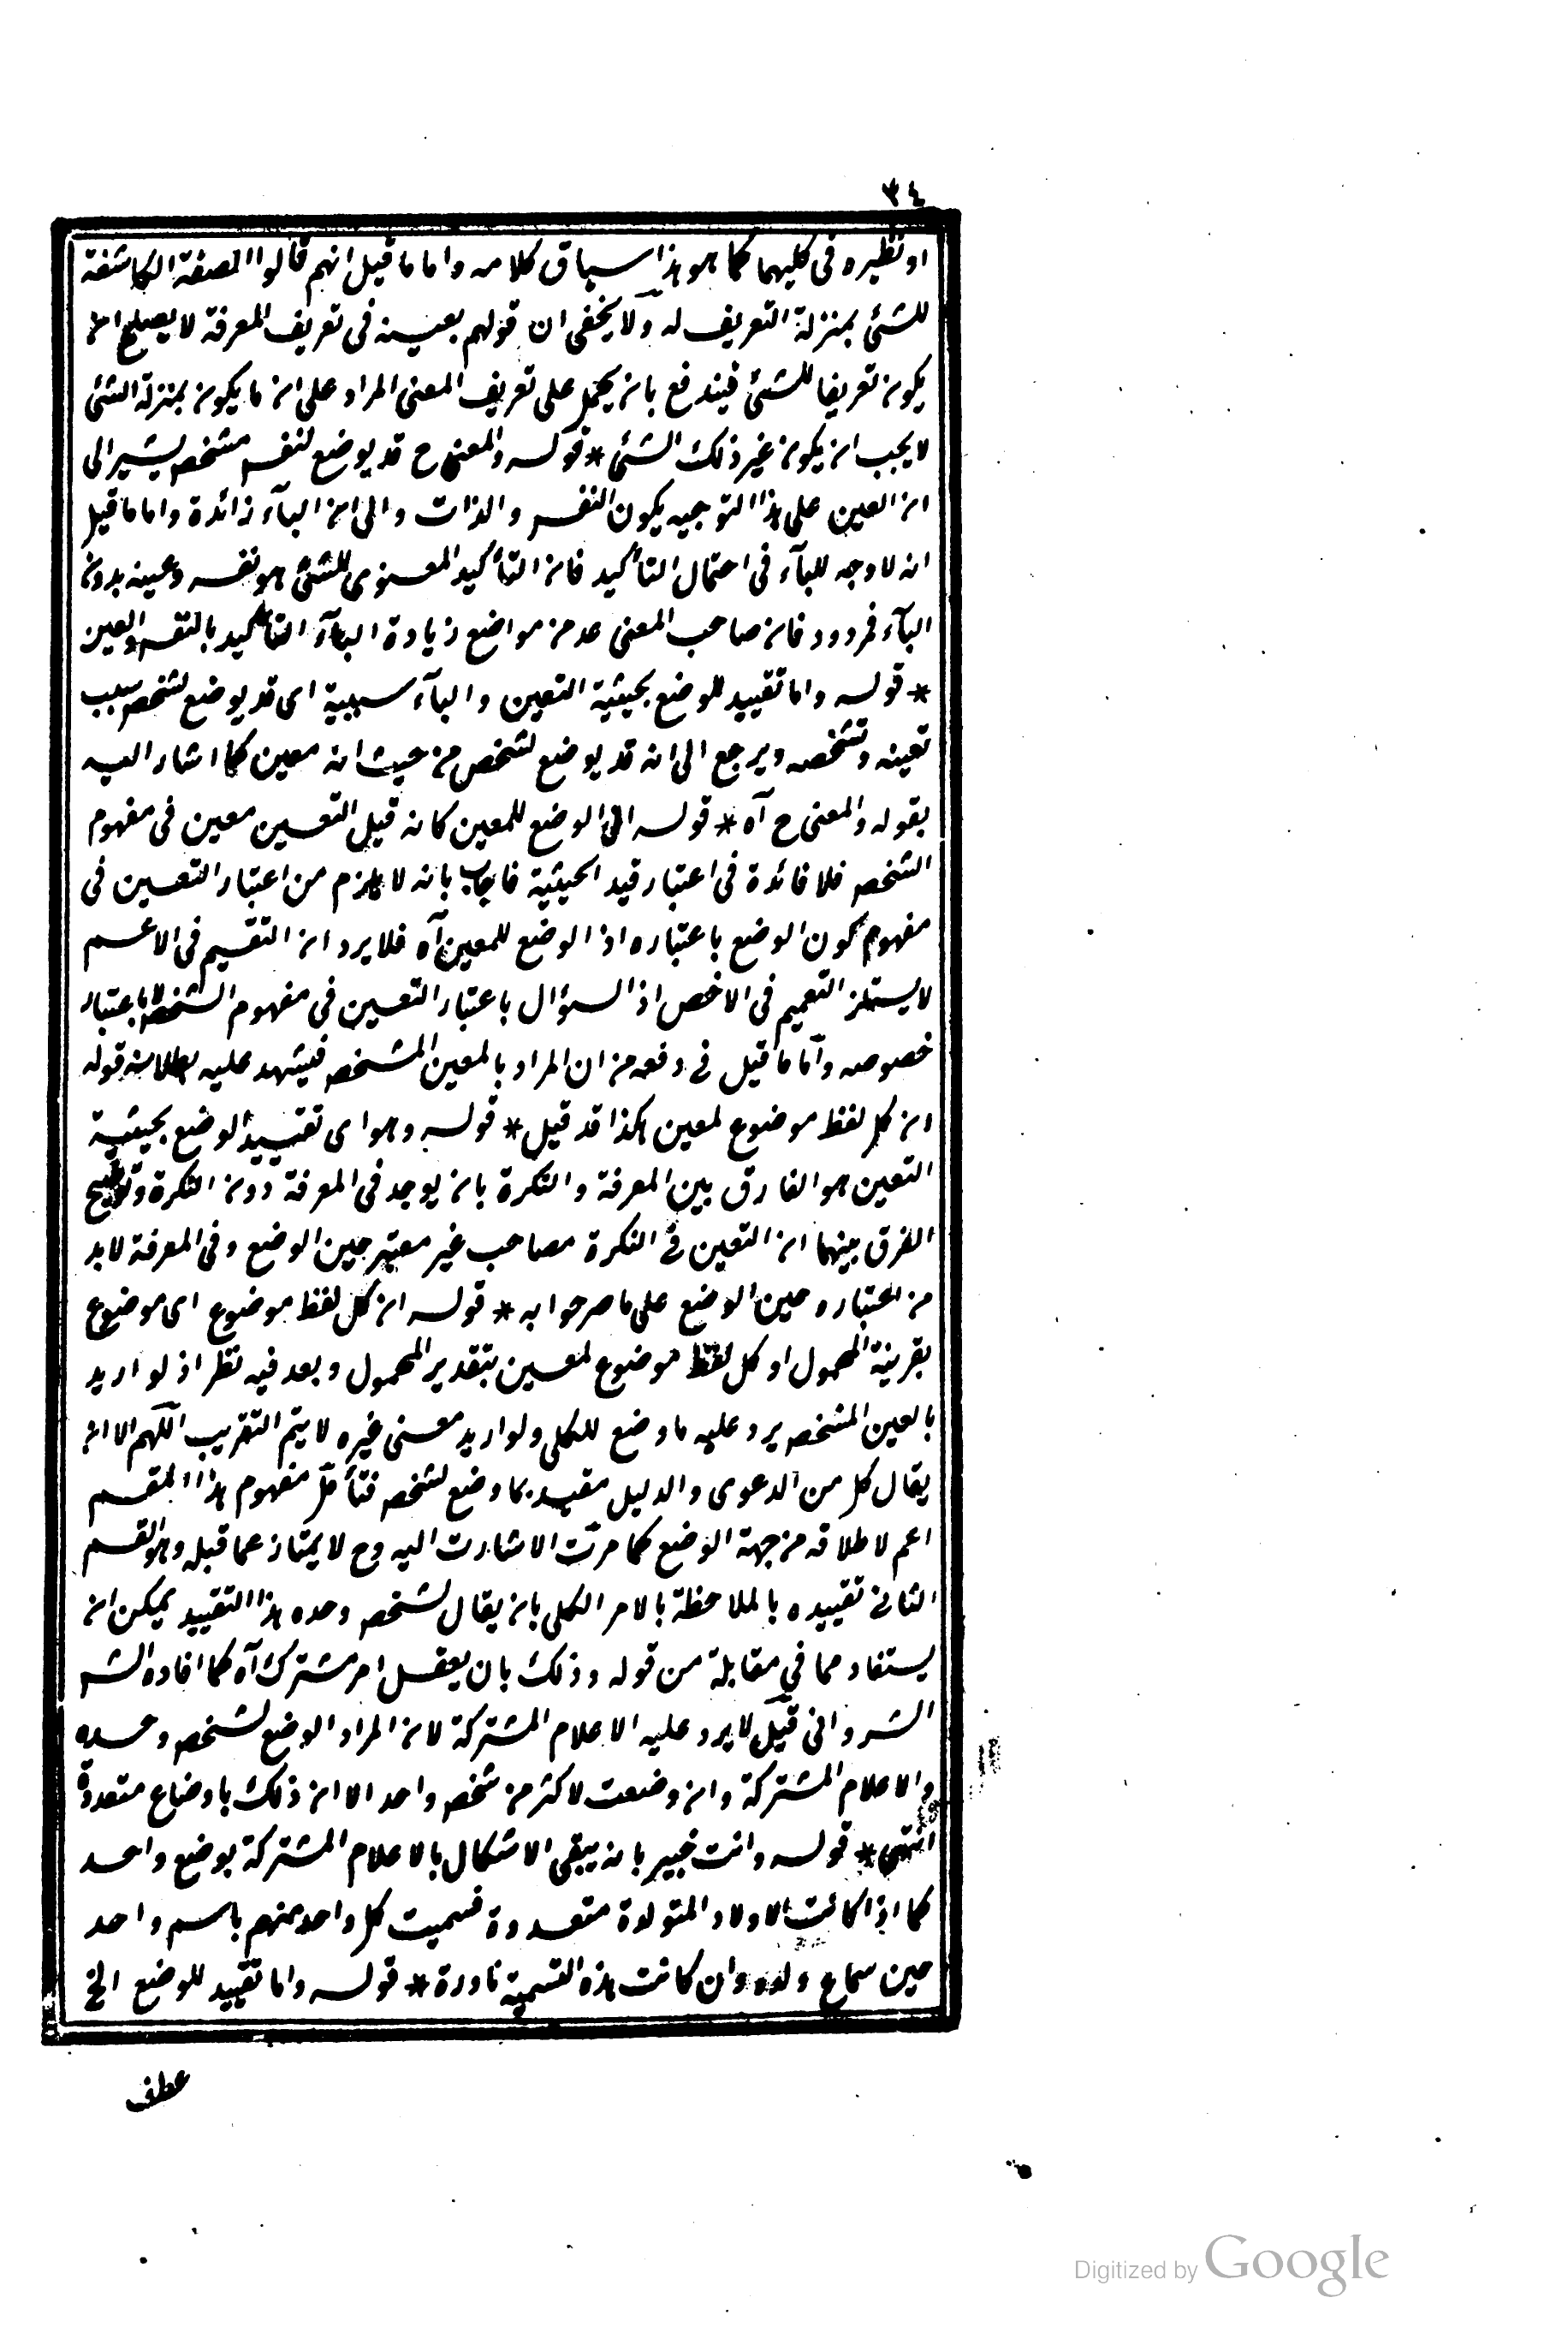 ٣٤
او نظيره فى كليهما كما هو هذا سياق كلامه واما ما قيل انهم قالوا الصفة الكاشفة
للشئ بمنزلة التعريف له ولا يخفى ان قولهم بعينه فى تعريف المعرفة لا يصلح ان
يكون تعريفا للشئ فيندفع بان يحمل على تعريف المعنى المراد على ان ما يكون بمنزلة الشئ
لا يجب ان يكون غير ذلك الشئ * قوله والمعنى ح قد يوضع لنفس مشخص يشير الى
ان العين على هذا التوجيه يكون النفس والذات والى ان البآء زائدة واما ما قيل
انه لا وجه للبآء فى احتمال التأكيد فان التأكيد المعنوى للشئ هو نفسه وعينه بدون
البآء فمردود فان صاحب المعنى عد من مواضع زيادة البآء التأكيد بالنفس والعين
* قوله واما تقييد للوضع بحيثية التعين والبآء سببية اى قد يوضع لشخص بسبب
تعينه وتشخصه ويرجع الى انه قد يوضع لشخص من حيث انه معين كما اشار اليه
بقوله والمعنى ح آه * قوله الى الوضع للمعين كانه قيل التعين معين فى مفهوم
الشخص فلا فائدة فى اعتبار قيد الحيثية فاجاب بانه لا يلزم من اعتبار التعين فى
مفهوم كون الوضع باعتباره اذ الوضع للمعين آه فلا يرد ان التقسيم فى الاعم
لا يستلزم التعميم فى الاخص اذ السؤال باعتبار التعين فى مفهوم الشخص لا باعتبار
خصوصه وآما ما قيل فى دفعه من ان المراد بالمعين المشخص فيشهد عليه بطلانه قوله
ان كل لفظ موضوع لمعين هكذا قد قيل * قوله وهو اى تقييد الوضع بحيثية
التعين هو الفارق بين المعرفة والنكرة بان يوجد فى المعرفة دون النكرة وتوضيح
الفرق بينهما ان التعين فى النكرة مصاحب غير معتبر حين الوضع وفى المعرفة لا بد
من اعتباره حين الوضع على ما صرحوا به * قوله ان كل لفظ موضوع اى موضوع
بقرينة المحمول او كل لفظ موضوع لمعين بتقدير المحمول وبعد فيه نظر اذ لو اريد
بالعين المشخص يرد عليه ما وضع للكلى ولو اريد معنى غيره لا يتم التقريب اللهم الا ان
يقال كل من الدعوى والدليل مقيد بما وضع لشخص فتأمل مفهوم هذا المقسم
اعم لاطلاقه من جهة الوضع كما مرت الاشارت اليه وح لا يمتاز عما قبله وهو القسم
الثانى تقييده بالملاحظة بالامر الكلى بان يقال لشخص وحده هذا التقييد يمكن ان
يستفاد مما فى مقابلة من قوله وذلك بان يعقل امر مشترك آه كما افاده الشه
الشروانى قيل لا يرد عليه الاعلام المشتركة لان المراد الوضع لشخص وحده
والاعلام المشتركة وان وضعت لاكثر من شخص واحد الا ان ذلك باوضاع متعددة
انتهى * قوله وانت خبير بانه يبقى الاشكال بالاعلام المشتركة بوضع واحد
كما اذا كانت الاولاد المتولدة متعددة فسميت كل واحد منهم باسم واحد
حين سماع ولده وان كانت هذه التسمية نادرة * قوله واما تقييد للوضع الخ
عطف
Digitized by Google